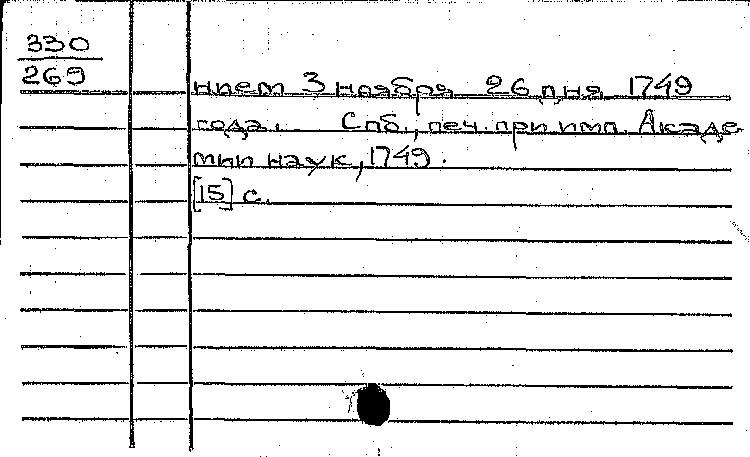 330
269
нием З ноября 26 дня 1749
года. Спб., печ. при имп. Акаде
мии наук, 1749.
[15] с.